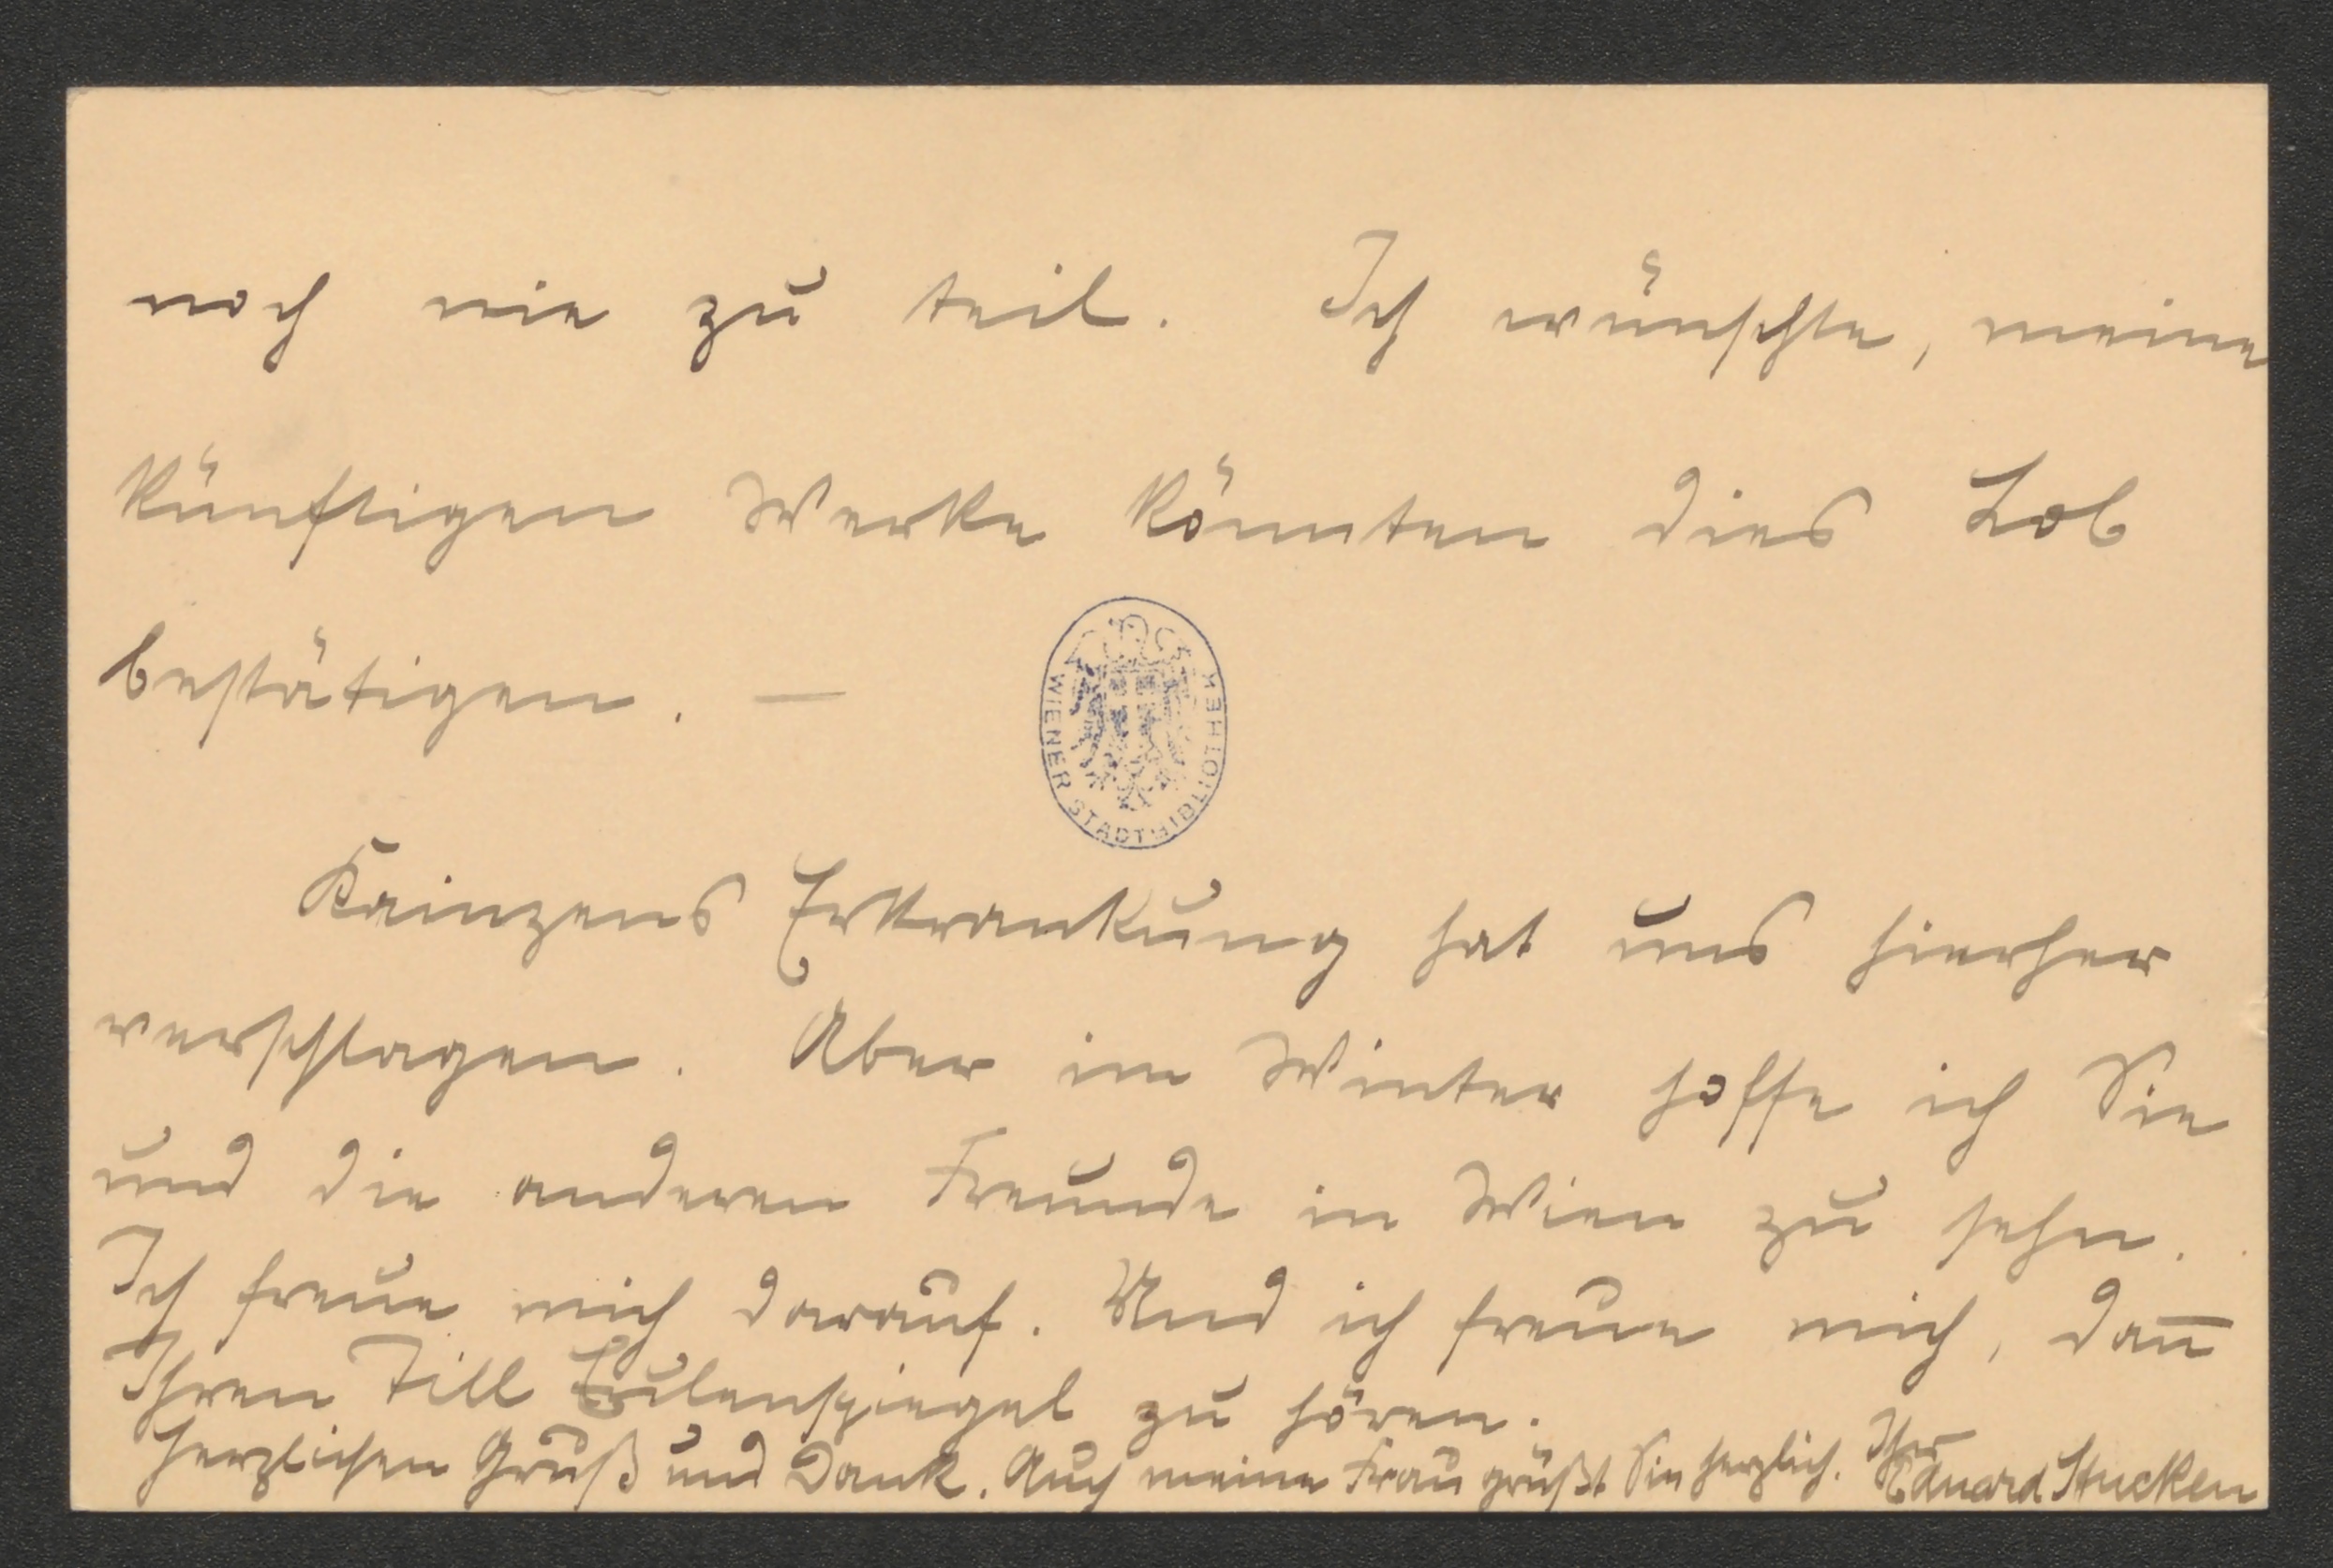 noch nie zu teil. Ich wünschte, meine
künftigen Werke könnten dies Lob
bestätigen. —
WIENER STADTBIBLIOTHEK
Kainzens Erkrankung hat uns hierher
verschlagen. Aber im Winter hoffe ich Sie
und die anderen Freunde in Wien zu sehn.
Ich freue mich darauf. Und ich freue mich, dan̅
Ihren Till Eulenspiegel zu hören.
Herzlichen Gruß und Dank. Auch meine Frau grüßt Sie herzlich. Ihr
Eduard Stucken